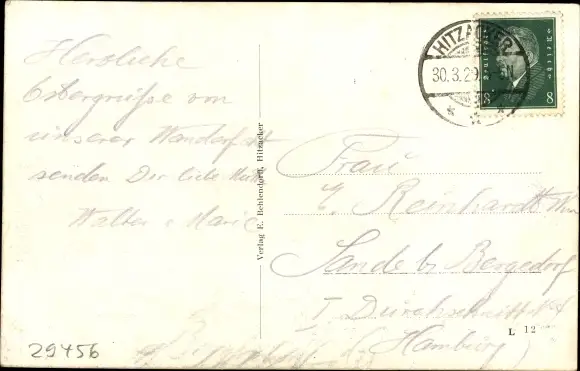 Herzliche
Ostergrüße von
unserer
senden Dir liebe
Walter u Marie
Verlag E. Behlendorff, Hitzacker
HITZACKER
30.3.29
Deutsches Reich
8 8
Frau
Reinhardt Wwe
Sande b/ Bergedorf
I Durchschnitt № 4
(Hamburg)
L 12
29456